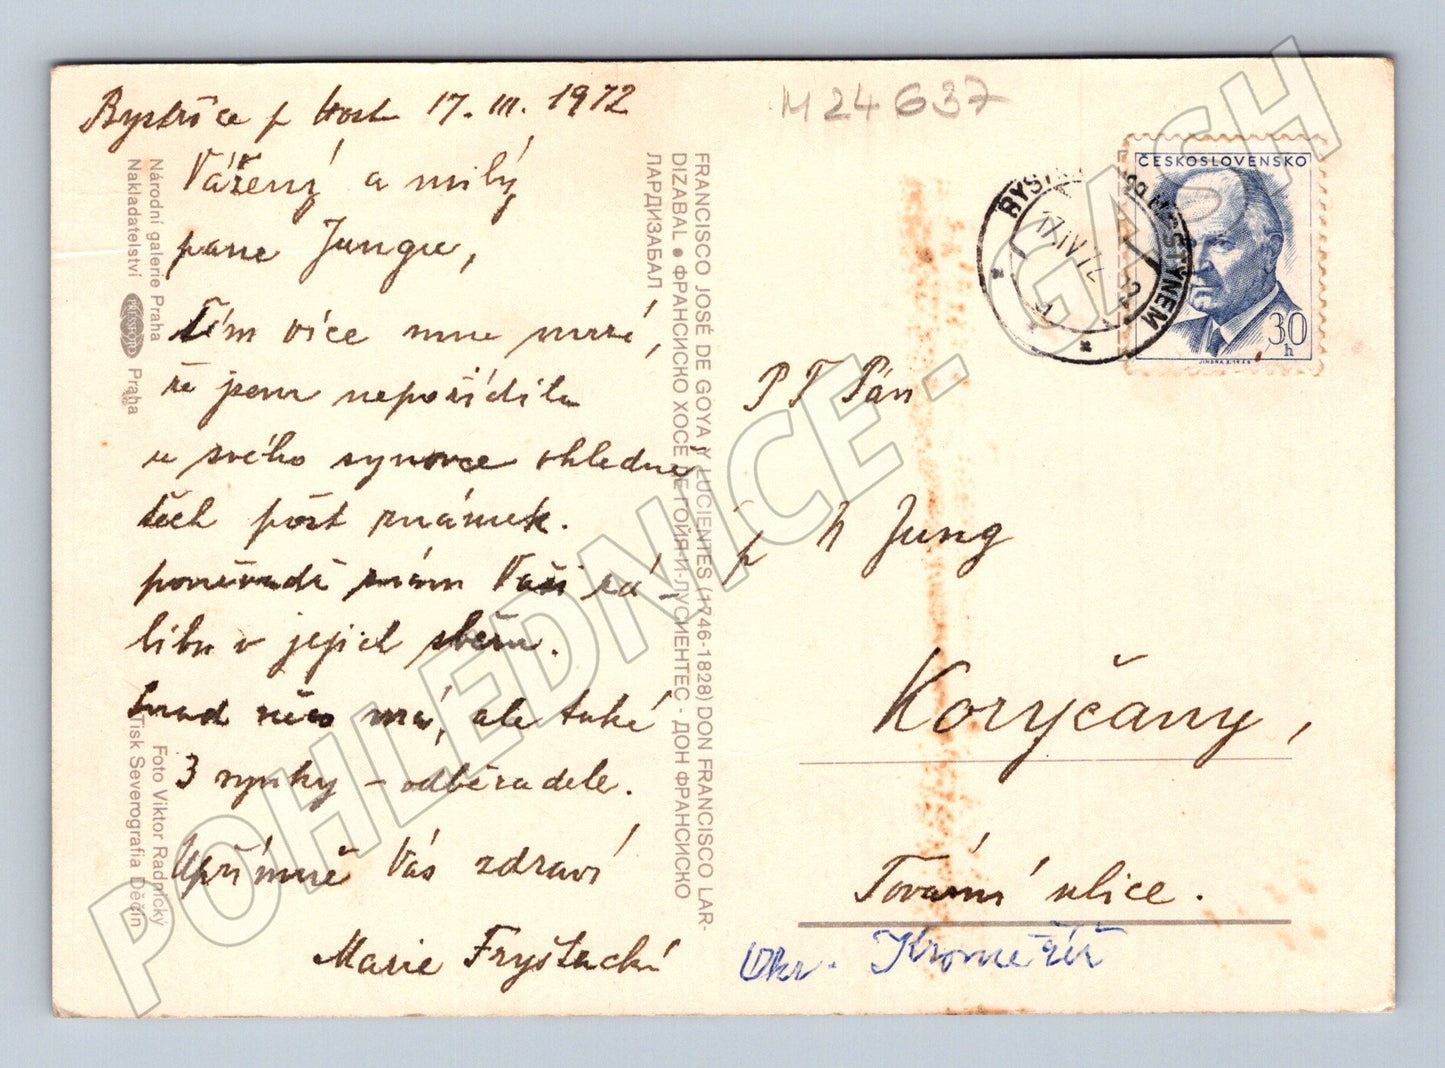 Bystřice p Host 17. III. 1972
Vážený a milý
pane Jungu,
Tím více mne mrzí,
že jsem nepořídila
u svého synovce ohledně
těch pošt známek.
poněvadž znám Vaši zá-
libu v jejich sběru.
Snad něco má, ale také
3 synky – odběratele.
Upřímně Vás zdraví
Marie Fryštacká
M24637
Národní galerie Praha
Nakladatelství PRESSFOTO Praha
Foto Viktor Radnický
Tisk Severografia Děčín
FRANCISCO JOSÉ DE GOYA Y LUCIENTES (1746-1828) DON FRANCISCO LAR-
DIZABAL • ФРАНСИСКО ХОСЕ ДЕ ГОЙЯ-И-ЛУСИЕНТЕС - ДОН ФРАНСИСКО
ЛАРДИЗАБАЛ
ČESKOSLOVENSKO
30 h
JINDRA SCHMIDT
BYSTŘICE POD HOSTÝNEM
17.IV.72
P T Pán
p h Jung
Koryčany,
Tovární ulice.
Okr. Kroměříž
POHLEDNICE - GASH